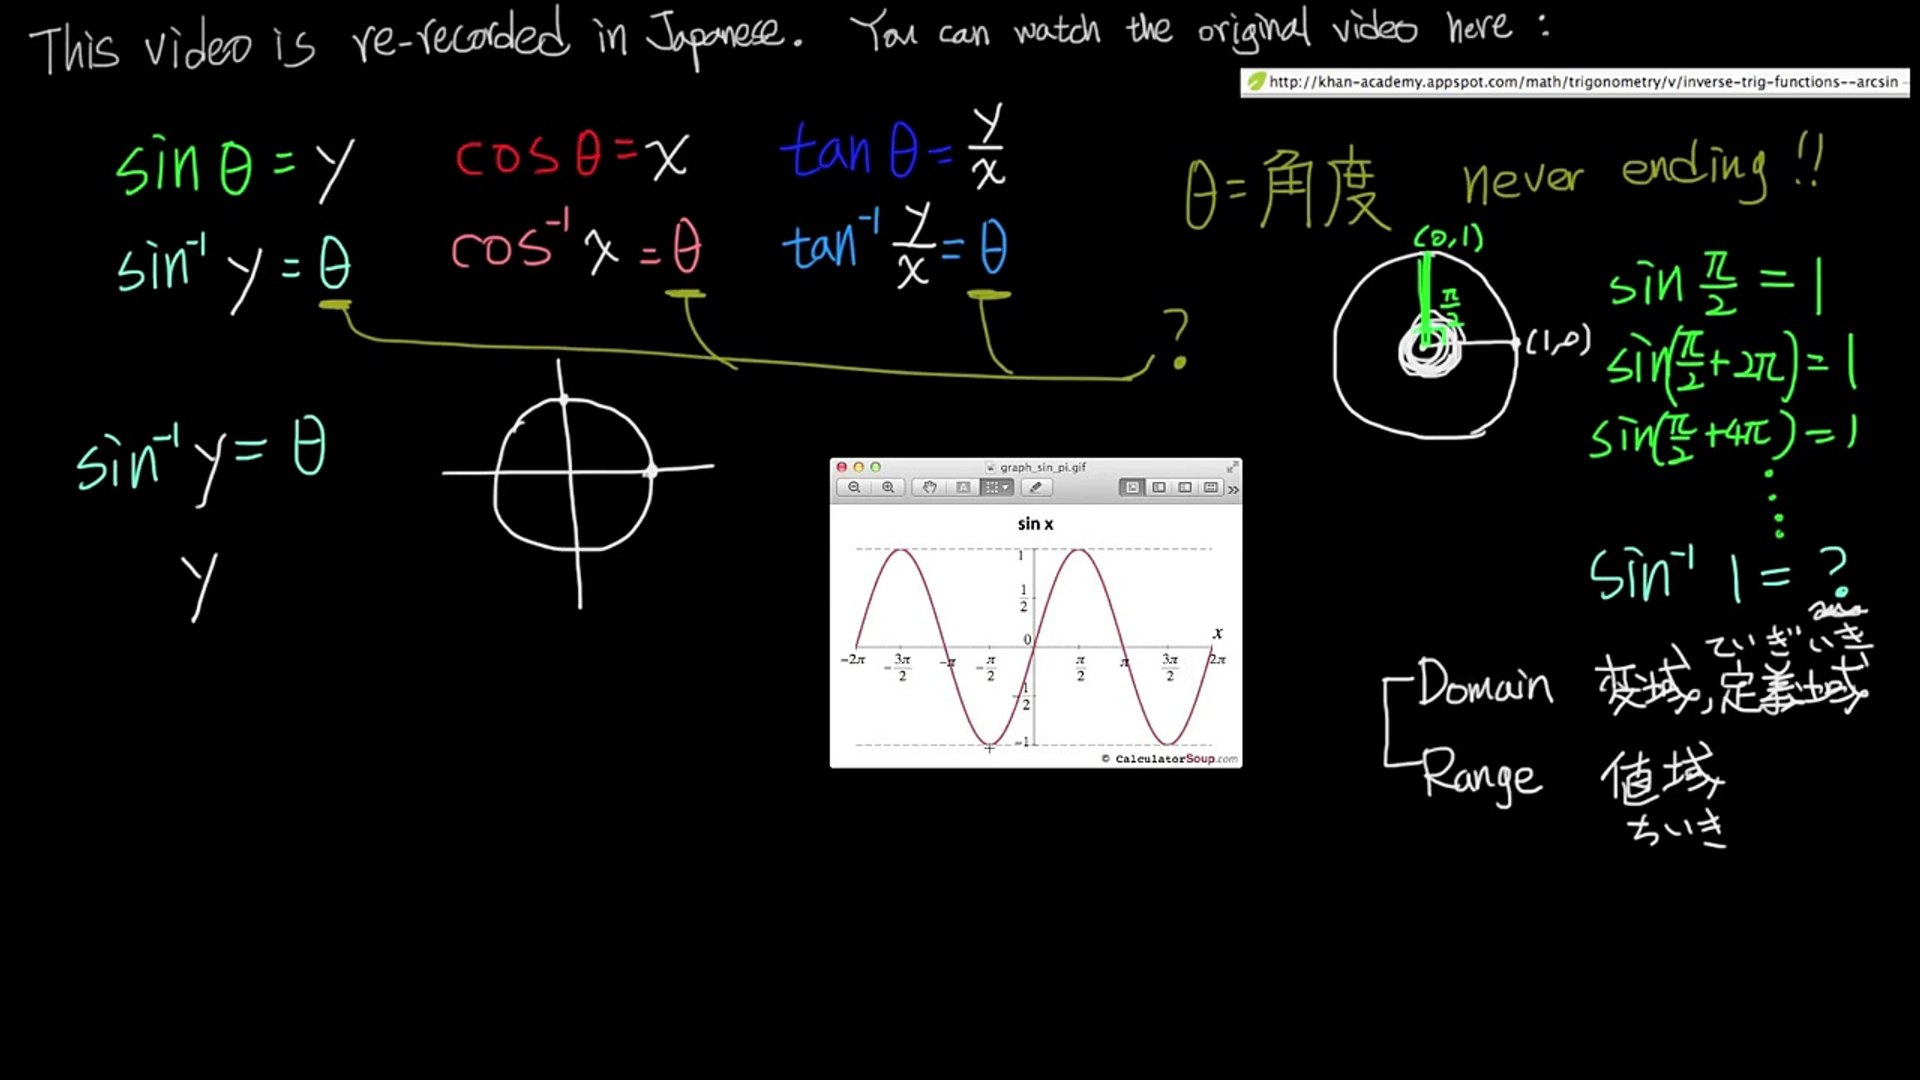 This video is re-recorded in Japanese. You can watch the original video here :
http://khan-academy.appspot.com/math/trigonometry/v/inverse-trig-functions--arcsin
sin θ = y
cos θ = x
tan θ = y/x
sin⁻¹ y = θ
cos⁻¹ x = θ
tan⁻¹ y/x = θ
?
θ = 角度 never ending !!
(0,1)
π/2
(1,0)
sin π/2 = 1
sin(π/2 + 2π) = 1
sin(π/2 + 4π) = 1
sin⁻¹ 1 = ?
sin⁻¹ y = θ
y
graph_sin_pi.gif
sin x
1
1/2
0
x
-2π -3π/2 -π -π/2 π/2 π 3π/2 2π
-1/2
-1
© CalculatorSoup.com
ていぎいき
Domain 変域, 定義域
Range 値域
ちいき